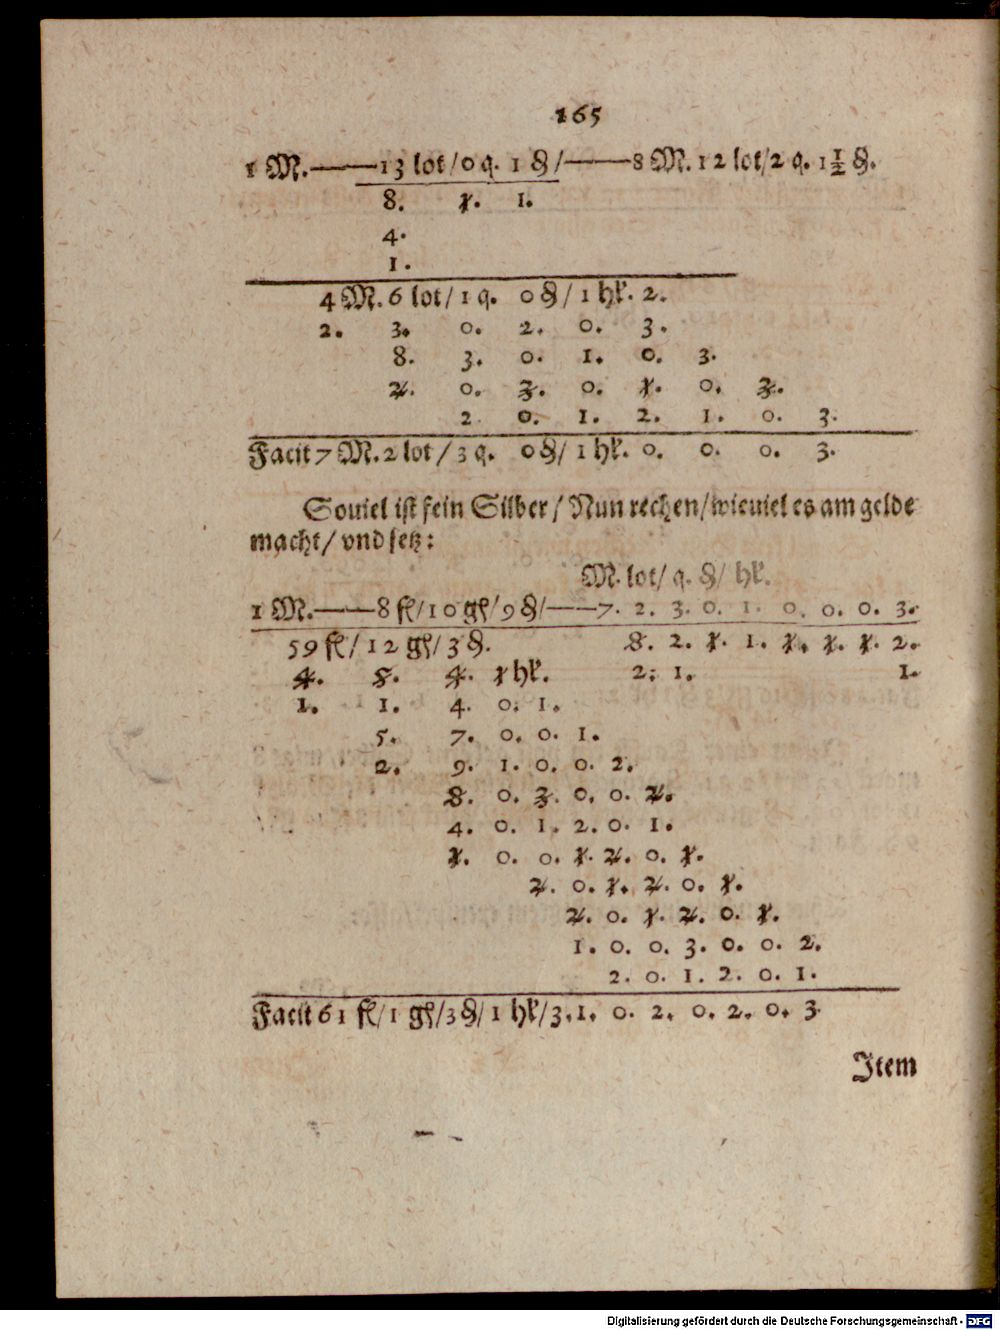 165
1 M.——13 lot /0 q. 1 ₰ /——8 M. 12 lot/2 q. 1½ ₰.
8. 1. 1.
4.
1.
4 M. 6 lot/ 1 q. 0 ₰/ 1 hl. 2.
2. 3. 0. 2. 0. 3.
8. 3. 0. 1. 0. 3.
2. 0. 3. 0. 1. 0. 3.
2 0. 1. 2. 1. 0. 3.
Facit 7 M. 2 lot / 3 q. 0 ₰/ 1 hl. 0. 0. 0. 3.
Souiel ist fein Silber / Nun rechen/ wieuiel es am gelde
macht/ vnd setz:
M. lot/ q. ₰/ hl.
1 M.——8 fl/ 10 gl/ 9 ₰/——7. 2. 3. 0. 1. 0. 0. 0. 3.
59 fl/ 12 gl/ 3 ₰. 8. 2. 1. 1. 1. 1. 1. 2.
4. 5. 4. 1 hl. 2; 1. 1.
1. 1. 4. 0. 1.
5. 7. 0. 0. 1.
2. 9. 1. 0. 0. 2.
8. 0. 3. 0. 0. 2.
4. 0. 1. 2. 0. 1.
1. 0. 0. 1. 2. 0. 1.
2. 0. 1. 2. 0. 1.
2. 0. 1. 2. 0. 1.
1. 0. 0. 3. 0. 0. 2.
2. 0. 1. 2. 0. 1.
Facit 61 fl/ 1 gl/3 ₰/ 1 hl/3. 1. 0. 2. 0. 2. 0. 3
Item
Digitalisierung gefördert durch die Deutsche Forschungsgemeinschaft - DFG